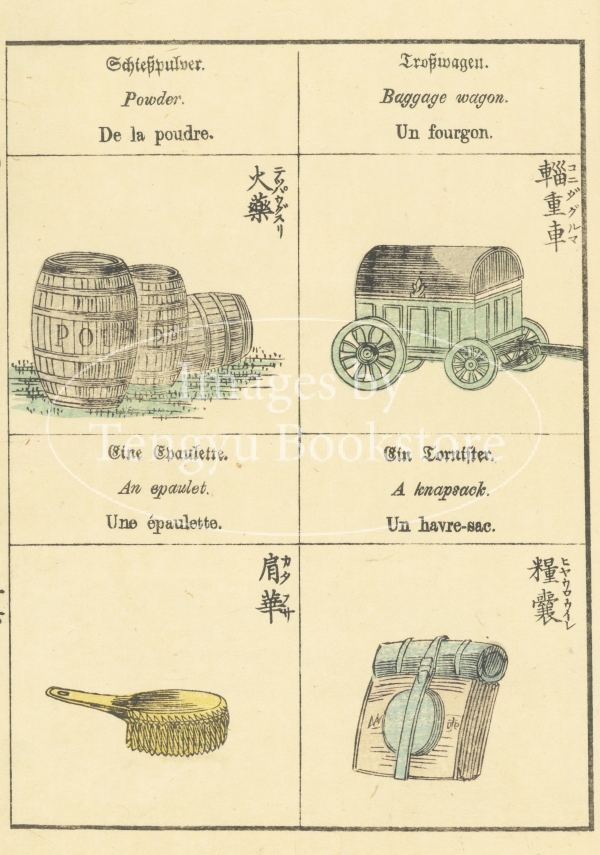 Schießpulver.
Powder.
De la poudre.
Troßwagen.
Baggage wagon.
Un fourgon.
火藥
テッパウグスリ
輜重車
コニダグルマ
POWDER
Images by
Tengyu Bookstore
Eine Epaulette.
An epaulet.
Une épaulette.
Ein Tornister.
A knapsack.
Un havre-sac.
肩華
カタフサ
糧嚢
ヒヤウロウイレ